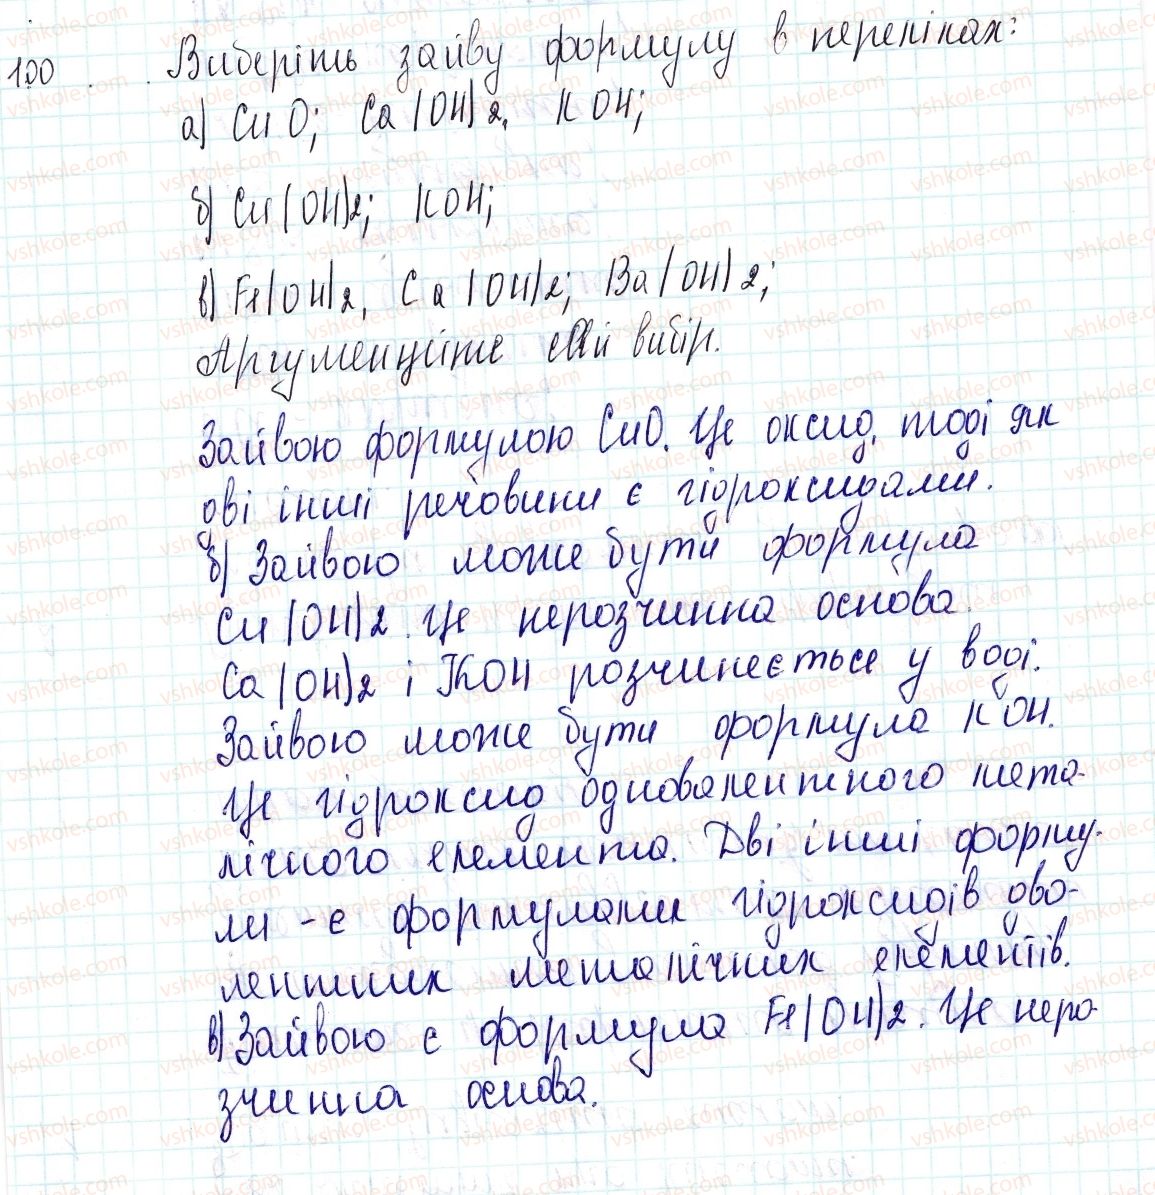 100 Виберіть зайву формулу в переліках:
а) CuO; Ca(OH)2, KOH;
б) Cu(OH)2; KOH;
в) Fe(OH)2, Ca(OH)2; Ba(OH)2;
Аргументуйте свій вибір.
Зайвою формулою CuO. Це оксид, тоді як
дві інші речовини є гідроксидами.
б) Зайвою може бути формула
Cu(OH)2. Це нерозчинна основа.
Ca(OH)2 і KOH розчинється у воді.
Зайвою може бути формула KOH.
Це гідроксид одновалентного мета-
лічного елемента. Дві інші форму-
ли - є формулами гідроксидів ово-
лентних металічних елементів.
в) Зайвою є формула Fe(OH)2. Це неро-
зчинна основа.
vshkole.com